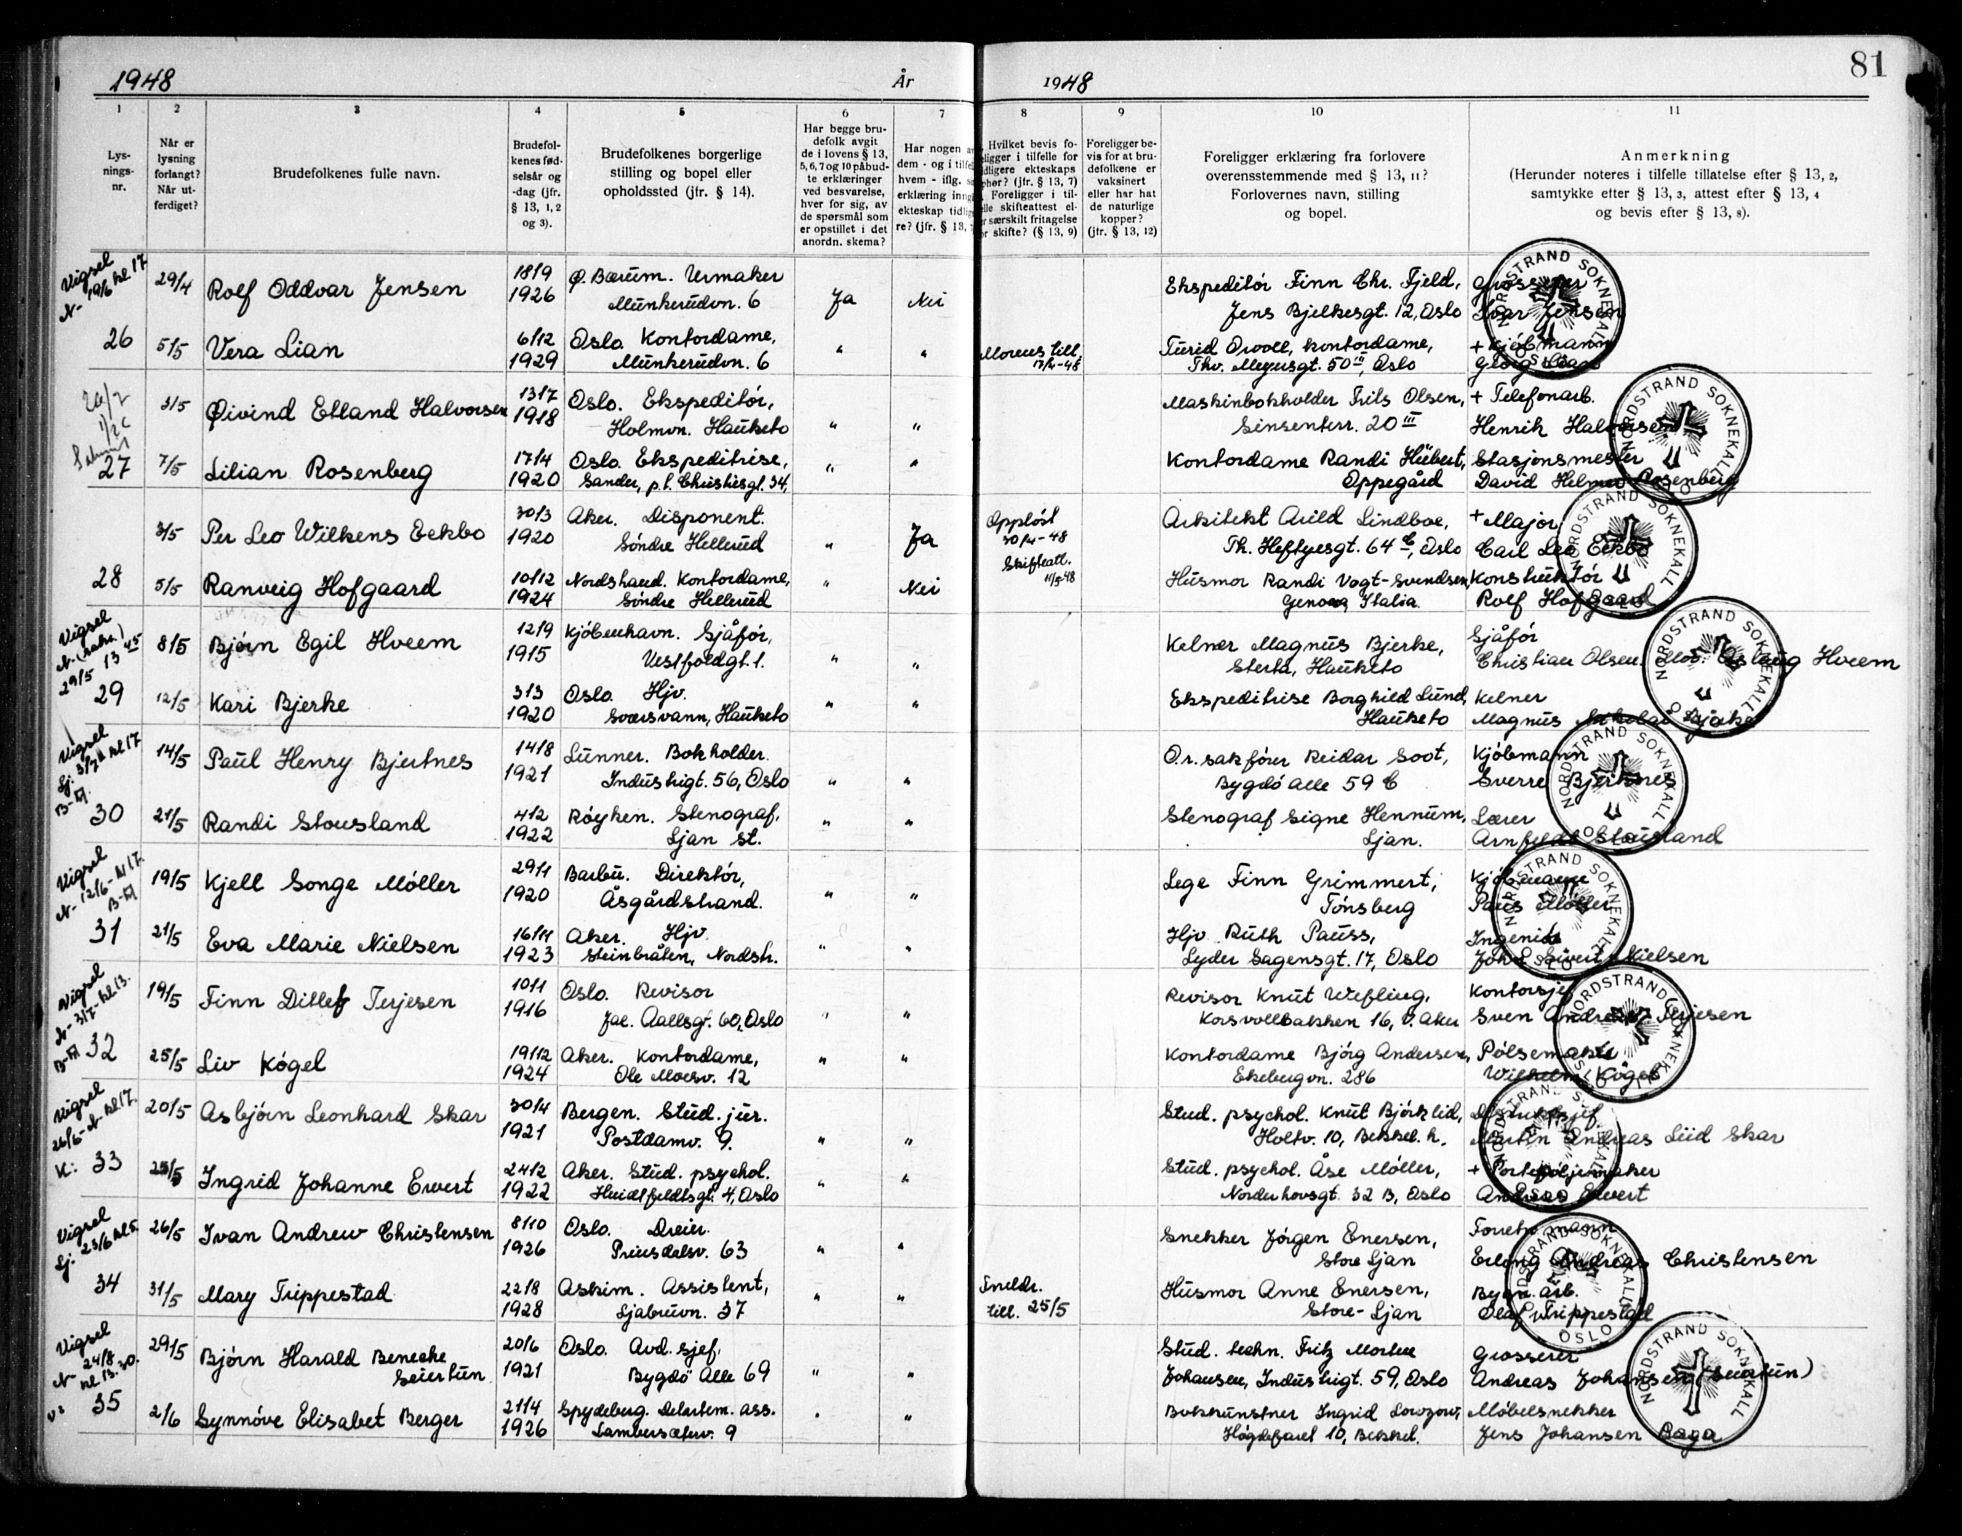 81
1948 År 1948
1 2 3 4 5 6 7 8 9 10 11
Lys-
nings-
nr.
Når er
lysning
forlangt?
Når ut-
ferdiget?
Brudefolkenes fulle navn.
Brudefol-
kenes fød-
selsår og
-dag (jfr.
§ 13, 1, 2
og 3).
Brudefolkenes borgerlige
stilling og bopel eller
opholdssted (jfr. § 14).
Har begge bru-
defolk avgit
de i lovens § 13,
5, 6, 7 og 10 påbud-
te erklæringer
ved besvarelse,
hver for sig, av
de spørsmål som
er opstillet i det
anordn. skema?
Har nogen a
dem - og i tilfel
hvem - iflg.
erklæring inng
ekteskap tidlig
re? (jfr. § 13,
Hvilket bevis fo-
eligger i tilfelle for
idligere ekteskaps
phør? (jfr. § 13, 7)
Foreligger i til-
elle skifteattest el-
r særskilt fritagelse
or skifte? (§ 13, 9)
Foreligger be-
vis for at bru-
defolkene er
vaksinert
eller har hat
de naturlige
kopper?
(jfr. § 13, 12)
Foreligger erklæring fra forlovere
overensstemmende med § 13, 11?
Forlovernes navn, stilling
og bopel.
Anmerkning
(Herunder noteres i tilfelle tillatelse efter § 13, 2,
samtykke efter § 13, 3, attest efter § 13, 4
og bevis efter § 13, 8).
Vigsel
N- 19/6 kl 17
29/4 Rolf Oddvar Jensen 18/9 1926 Ø. Bærum. Urmaker
Munkerudvn. 6 Ja Nei Ekspeditór Finn Chr. Fjeld,
Jens Bjelkesgt. 12, Oslo Grosserer
Ivar Jensen
26 5/5 Vera Lian 6/12 1929 Oslo Kontordame,
Munkerudvn. 6 " " Morens till.
Turid Orvoll, kontordame,
Thv. Meyersgt. 50 III, Oslo + Kjóbmann
Georg
3/5 Øivind Elland Halvorsen 13/7 1918 Oslo. Ekspeditór,
Holmvn. Hauketo " " Maskinbokholder Frits Olsen,
Sinsenterr. 20 III + Telefonarb.
Henrik Halvorsen
27 7/5 Lilian Rosenberg 17/4 1920 Oslo. Ekspeditrise,
Sander, p.l. Christiesgt. 34, " " Kontordame Randi Hübert,
Oppegård Stasjonsmester
David Helmer Rosenberg
3/5 Per Leo Wilkens Eckbo 30/3 1920 Aker. Disponent.
Sóndre Hellerud " Ja Oppløst
30/4-48
Skifteatt.
11/5 48
Arkitekt Arild Lindboe,
Th. Heftyesgt. 64 C, Oslo + Major
Carl Leo Eckbo
28 5/5 Ranveig Hofgaard 10/12 1924 Nordstrand. Kontordame,
Sóndre Hellerud " Nei Husmor Randi Vogt-Svendsen
Genova, Italia Konstruktór
Rolf Hofgaard
Vigsel
29/5 13 45
8/5 Bjørn Egil Hveem 12/9 1915 Kjóbenhavn. Sjåfór,
Vestfoldgt. 1. " " Kelner Magnus Bjerke,
Sterta, Hauketo Sjåfór
Christian Olsen. Mor: Aslaug Hveem
29 12/5 Kari Bjerke 3/3 1920 Oslo. Hjv.
Svarsvann, Hauketo " " Ekspeditrise Borghild Lund,
Hauketo Kelner
Magnus Nikolai Bjerke
Vigsel
Sj. 3/7 kl 17
14/5 Paul Henry Bjertnes 14/8 1921 Lunner. Bokholder.
Industrigt. 56, Oslo " " O.r. sakfører Reidar Soot,
Bygdó Alle 59 C Kjóbmann
Sverre Bjertnes
30 21/5 Randi Stousland 4/12 1922 Róyken. Stenograf,
Ljan st. " " Stenograf Signe Hennum,
Ljan. Lærer
Arnfeldt Stousland
Vigsel
N- 12/6 - kl 17.
19/5 Kjell Songe Móller 29/11 1920 Barbu. Direktór,
Åsgårdstrand. " " Lege Finn Grimmert,
Tónsberg Kjóbmann
Paus Móller
31 21/5 Eva Marie Nielsen 16/11 1923 Aker. Hjv.
Steinbråten, Nordstr. " " Hjv Ruth Pauss,
Lyder Sagensgt. 17, Oslo Ingeniór
John Sivert Nielsen
Vigsel
N- 3/7- kl 13.
19/5 Finn Ditlef Terjesen 10/1 1916 Oslo. Revisor
Jac. Aallsgt. 60, Oslo " " Revisor Knut Wefling,
Korsvollbakken 16, V. Aker Kontorsjef
Sven Andreas Terjesen
32 25/5 Liv Kógel 19/12 1924 Aker. Kontordame,
Ole Moesv. 12 " " Kontordame Bjórg Andersen,
Ekebergvn. 286 Pólsemaker
Wilhelm Kógel
Vigsel
26/6-N kl 17.
20/5 Asbjórn Leonhard Skar 30/4 1921 Bergen. Stud. jur.
Postdamv. 9. " " Stud. psychol. Knut Bjórklid,
Holtv. 10, Bekkel. h. Distriktsjef.
Martin Andreas Liid Skar
33 25/5 Ingrid Johanne Ewert 24/2 1922 Aker. Stud. psychol.
Heidtfeldtsgt. 4, Oslo " " Stud. psychol. Åse Móller,
Norderhovsgt. 32 B, Oslo + Porteføljemaker
Andreas Ewert
Vigsel
Sj. 23/6 kl 5.
26/5 Ivan Andrew Christensen 8/10 1926 Oslo. Dreier.
Prinsdalsv. 63 " " Snekker Jórgen Enersen,
Store Ljan Forretn.mann
Erling Andreas Christensen
34 31/5 Mary Trippestad 22/8 1928 Askim. Assistent,
Ljabruvn. 37 " " Foreldr.
till. 25/5 Husmor Anne Enersen,
Store-Ljan Bygn. arb.
Olaf Trippestad
Vigsel
N- 24/8
kl 13.30.
29/5 Bjórn Harald Benecke
Seiertun 20/6 1921 Oslo. Avd. sjef.
Bygdó Alle 69 " " Stud. techn. Fritz Morten
Johansen, Industrigt. 59, Oslo Grosserer
Andreas Johansen (Seiertun)
35 2/6 Synnóve Elisabet Berger 21/4 1926 Spydeberg. Detartem. ass.
Lambersæterv. 9 " " Bokkunstner Ingrid Lowzow,
Høgdefaret 10, Bekkel. Móbelsnekker
Jens Johansen Baga
NORDSTRAND SOKNEKALL
OSLO